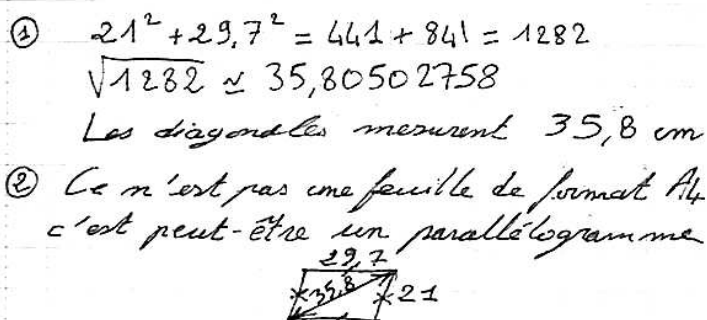 ① 21² + 29,7² = 441 + 841 = 1282
√1282 ≃ 35,80502758
Les diagonales mesurent 35,8 cm
② Ce n'est pas une feuille de format A4
c'est peut-être un parallélogramme
29,7
35,8 21